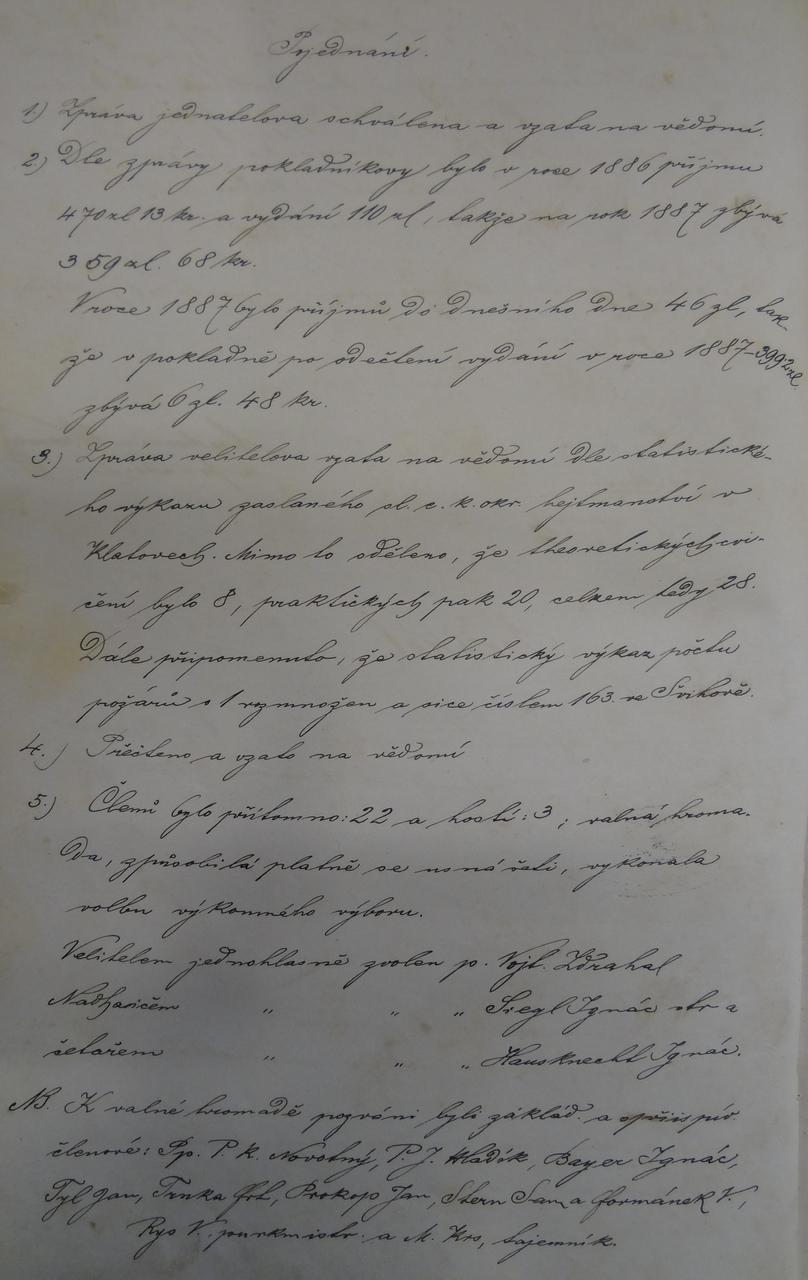 Pojednání.
1.) Zpráva jednatelova schválena a vzata na vědomí.
2.) Dle zprávy pokladníkovy bylo v roce 1886 příjmu
470 zl 13 kr. a vydání 110 zl, takže na rok 1887 zbývá
359 zl. 68 kr.
V roce 1887 bylo příjmů do dnešního dne 46 zl, tak-
že v pokladně po odečtení vydání v roce 1887 - 399 zl
zbývá 6 zl. 48 kr.
3.) Zpráva velitelova vzata na vědomí dle statistické-
ho výkazu zaslaného sl. c. k. okr. hejtmanství v
Klatovech. Mimo to sděleno, že theoretických cvi-
čení bylo 8, praktických pak 20, celkem tedy 28.
Dále připomenuto, že statistický výkaz počtu
požárů o 1 rozmnožen a sice číslem 163 ve Švihově.
4.) Přečteno a vzato na vědomí
5.) Členů bylo přítomno: 22 a hostí: 3; valná hroma-
da, způsobilá platně se usnášeti, vykonala
volbu výkonného výboru.
Velitelem jednohlasně zvolen p. Vojt. Zdrahal
Nadhasičem " " " Siegl Ignác str a
šetařem " " " Hausknecht Ignác.
NB. K valné hromadě pozváni byli základ. a přisp.
členové: Pp. P. K. Novotný, P. J. Hladík, Bayer Ignác,
Tyl Jan, Trnka Frt, Prokop Jan, Stern Sam a Formánek V.,
Rys V. purkmistr. a M. Krs, tajemník.